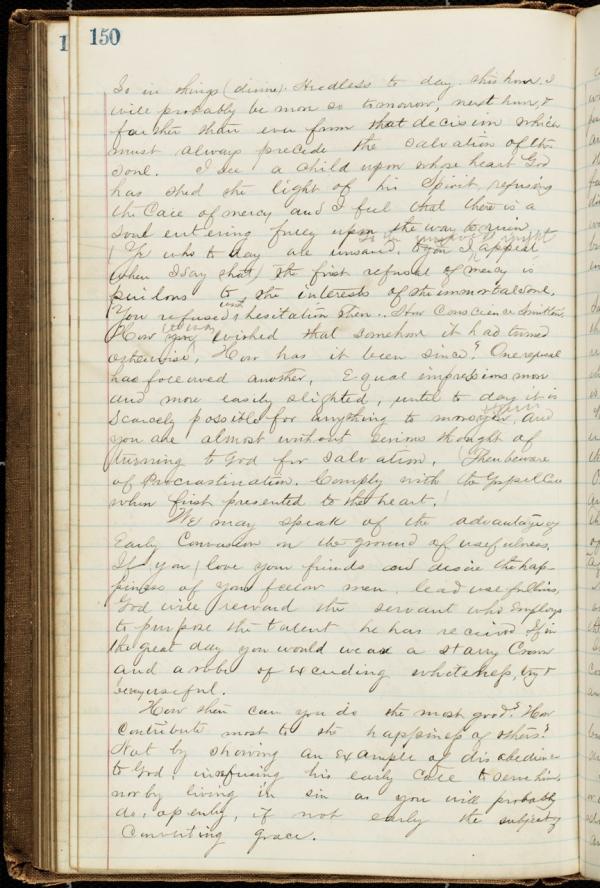 150
So in things (divine). Heedless to day this hour. I
will probably be more so tomorrow, next hour, &
farther than ever from that decision which
must always precede the salvation of the
soul. I see a child upon whose heart God
has shed the light of his Spirit, refusing
the Call of mercy and I feel that there is a
soul entering freely upon the way to ruin
Ye who to day are unsaved, to you I appeal
when I say that the first refusal of mercy is
perilous to the interests of the immortal soul.
You refused & hesitation then. How Conscience
How you wished that somehow it had turned
otherwise, How has it been since? One refusal
has followed another, Equal impressions more
and more easily slighted, until to day it is
scarcely possible for anything to move you, and
you are almost without serious thought of
turning to God for salvation. Then beware
of Procrastination. Comply with the Gospel Call
when first presented to the heart.
We may speak of the advantage of
Early Conversion on the ground of usefulness.
If you love your friends and desire the hap-
piness of your fellow men, lead useful lives,
God will reward the servant who Employs
to purpose the talent he has received If in
the great day you would wear a starry Crown
and a robe of Exceeding whiteness, try &
be very useful.
How then can you do the most good? How
Contribute most to the happiness of others?
Not by showing an Example of disobedience
to God, in refusing his early Call to serve him,
nor by living in sin as you will probably
do, openly, if not early the subject of
Converting grace.